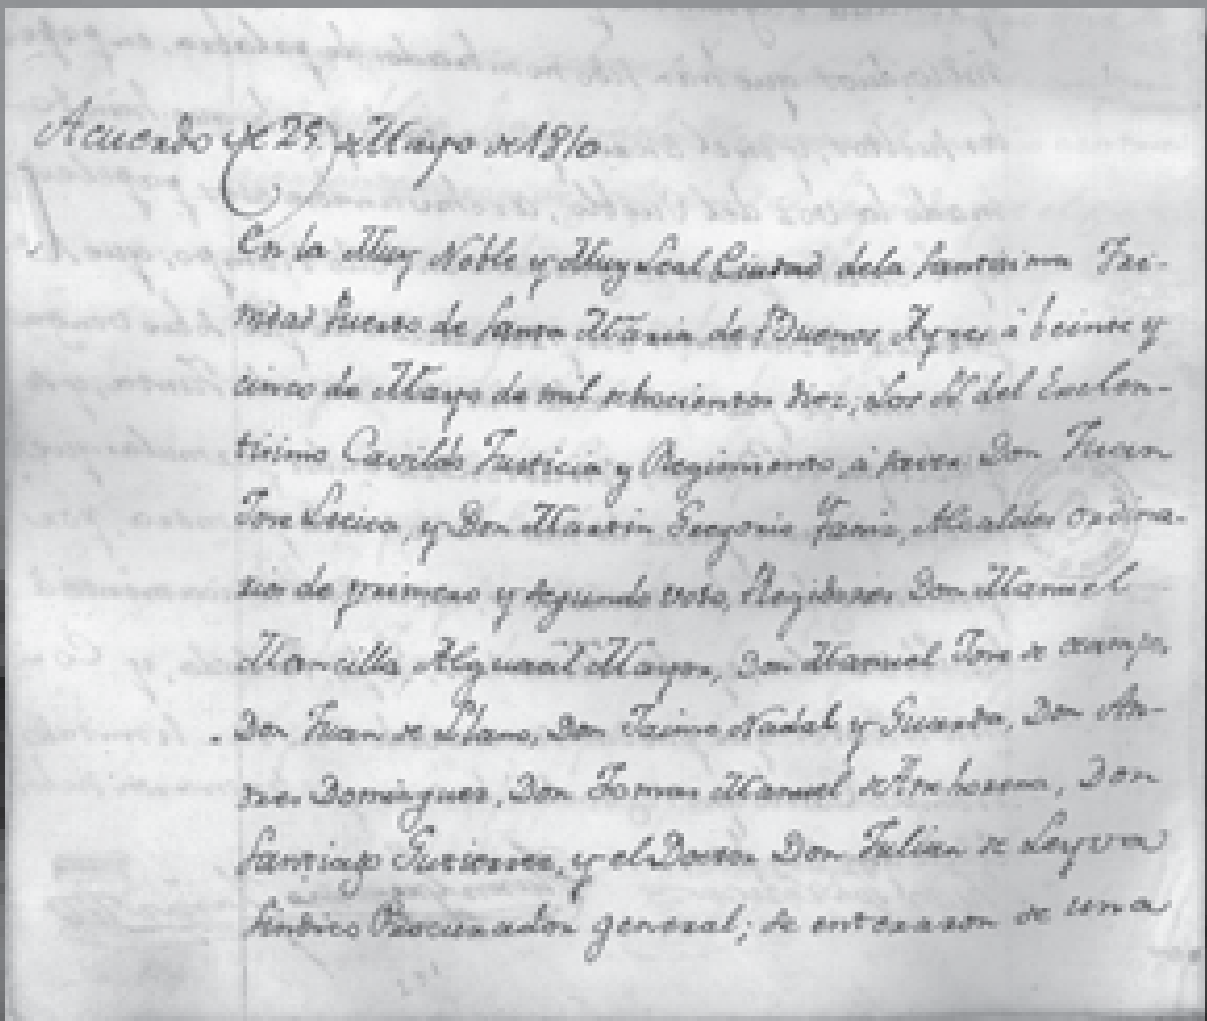 Acuerdo de 25 de Mayo de 1810
En la Muy Noble y Muy Leal Ciudad dela Santisima Tri-
nidad Puerto de Santa Maria de Buenos Ayres à beinte y
cinco de Mayo de mil ochocientos diez; Los SS. del Exelen-
tisimo Cavildo Justicia y Regimiento, à saver Don Juan
Jose Lezica, y Don Martin Gregorio Yaniz, Alcaldes ordina-
rios de primero y segundo voto, Regidores Don Manuel
Mancilla Alguacil Mayor, Don Manuel Jose de Ocampo,
Don Juan de Llano, Don Jaime Nadal y Guarda, Don An-
dres Dominguez, Don Tomas Manuel de Anchorena, Don
Santiago Gutierrez, y el Doctor Don Julian de Leyva
Sindico Procurador general; se enteraron de una